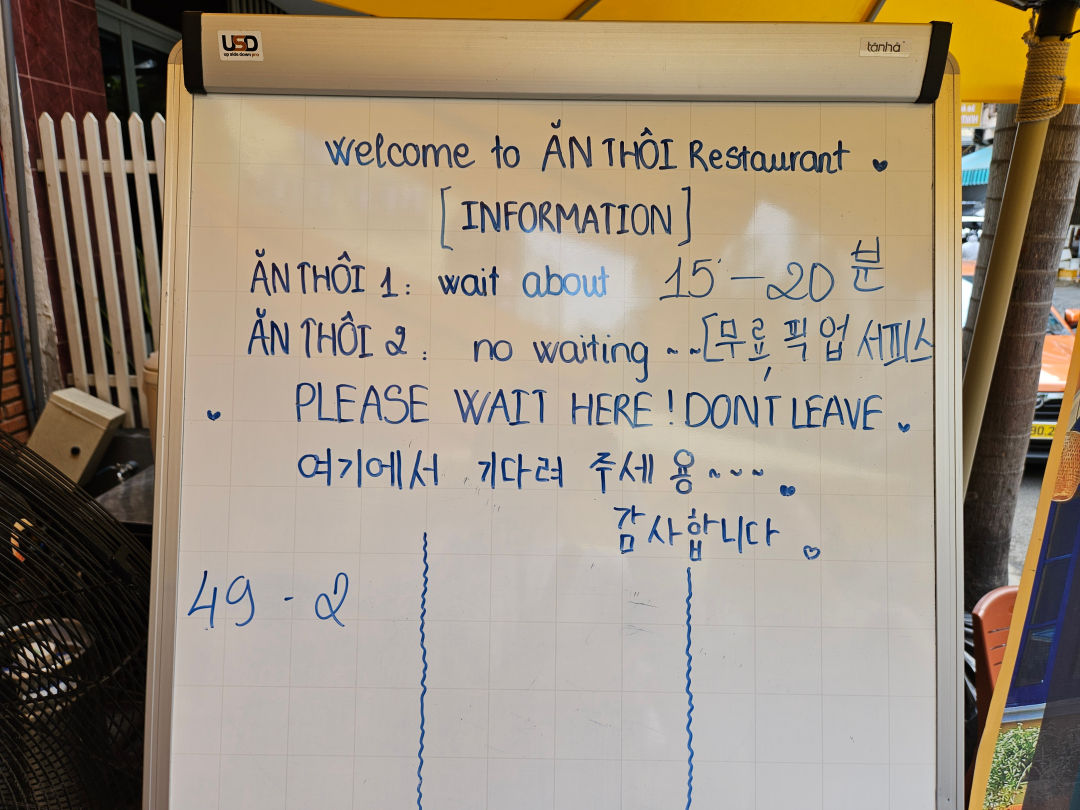 USD
up side down pro
tânhà
Welcome to ĂN THÔI Restaurant
[INFORMATION]
ĂN THÔI 1: wait about 15 - 20 분
ĂN THÔI 2: no waiting ~~[무료 픽업 서피스
PLEASE WAIT HERE! DON'T LEAVE
여기에서 기다려 주세용~~~
감사합니다
49 - 2